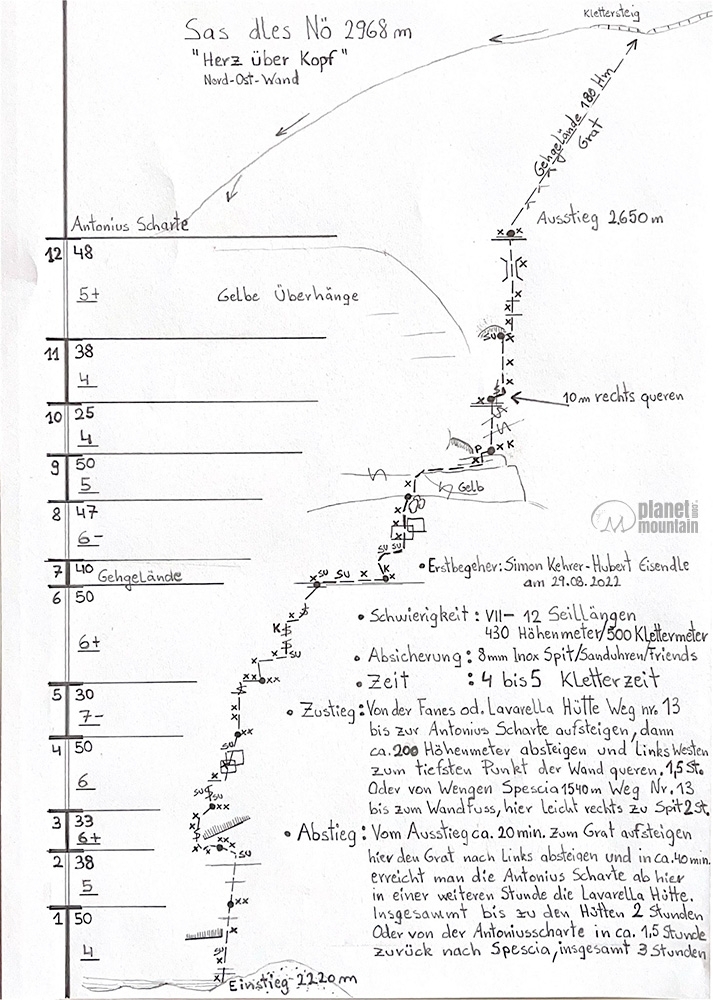 Klettersteig
Sas dles Nö 2968m
"Herz über Kopf"
Nord-Ost-Wand
Gehgelände 180 Hm
Grat
Antonius Scharte
Ausstieg 2.650 m
12 48
5+
Gelbe Überhänge
su
11 38
4
su
10m rechts queren
10 25
4
P K
9 50
5
Gelb
8 47
6-
su su
planet
mountain
.com
7 40
Gehgelände
su su K
• Erstbegeher: Simon Kehrer-Hubert Eisendle
am 29.08.2022
6 50
6+
K
su
• Schwierigkeit: VII- 12 Seillängen
430 Höhenmeter/500 Klettermeter
• Absicherung: 8mm Inox Spit/Sanduhren/Friends
• Zeit : 4 bis 5 Kletterzeit
5 30
7-
• Zustieg: Von der Fanes od. Lavarella Hütte Weg nr. 13
bis zur Antonius Scharte aufsteigen, dann
ca. 200 Höhenmeter absteigen und Links Westen
zum tiefsten Punkt der Wand queren. 1,5 St.
Oder von Wengen Spescia 1540m Weg Nr. 13
bis zum Wandfuss, hier leicht rechts zu Spit 2 St.
4 50
6
su
su
su
3 33
6+
• Abstieg: Vom Ausstieg ca. 20 min. zum Grat aufsteigen
hier den Grat nach Links absteigen und in ca. 40 min.
erreicht man die Antonius Scharte ab hier
in einer weiteren Stunde die Lavarella Hütte.
Insgesammt bis zu den Hütten 2 Stunden
Oder von der Antoniusscharte in ca. 1,5 Stunde
zurück nach Spescia, insgesamt 3 Stunden
2 38
5
su
1 50
4
su
Einstieg 2220 m